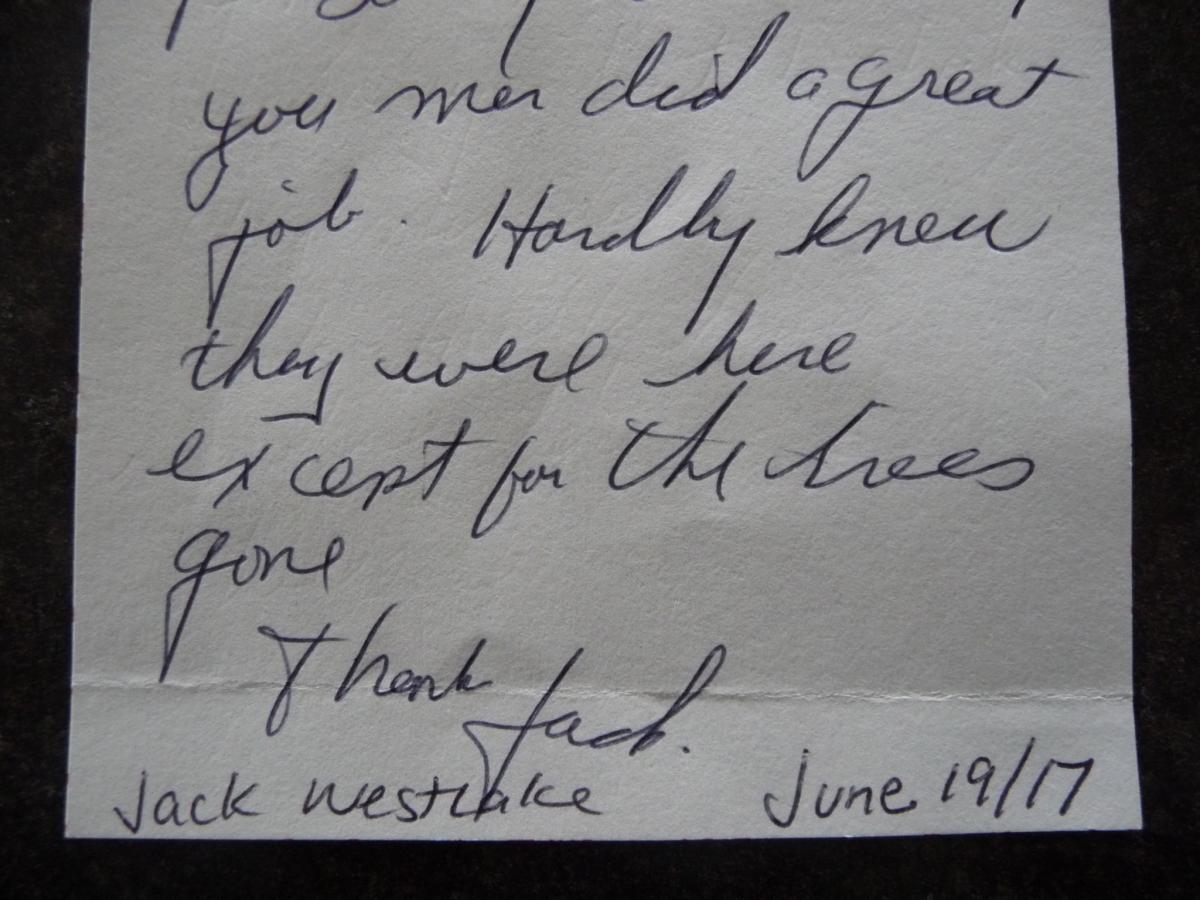 you men did a great
job. Hardly knew
they were here
except for the trees
gone
Thank
Jack.
Jack Westlake June 19/17